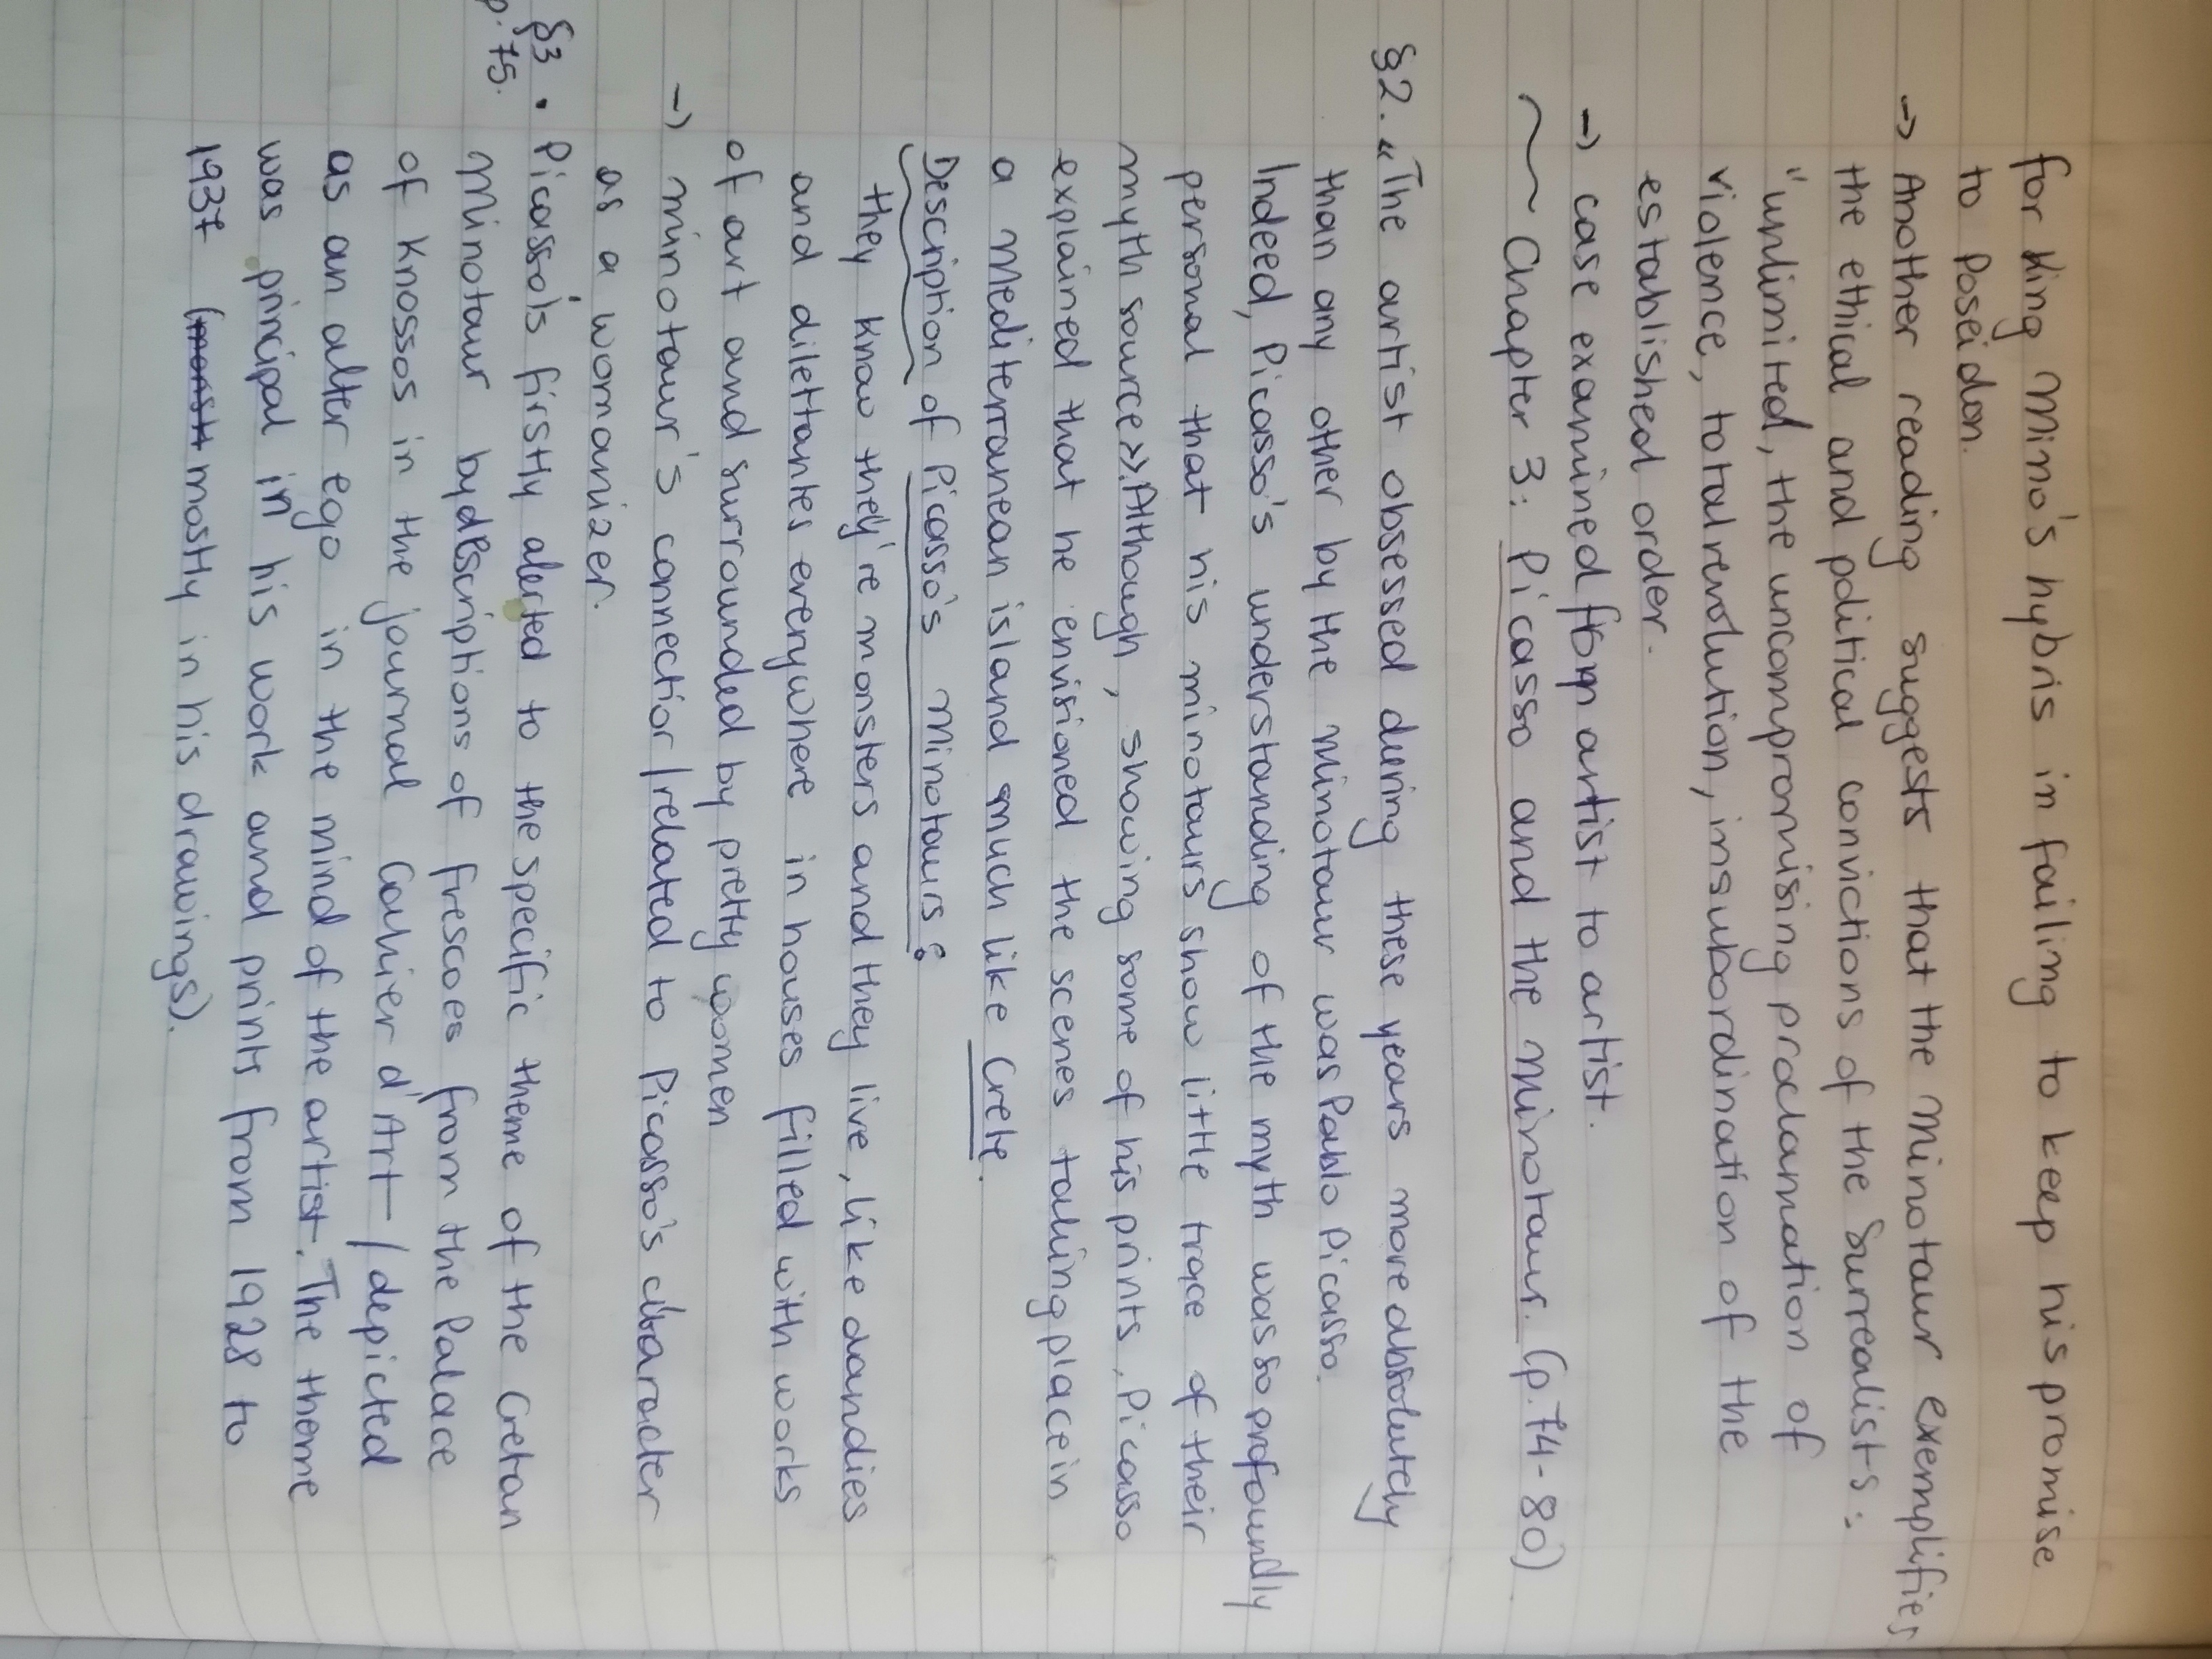 for King Mino's hybris in failing to keep his promise
to Poseidon.
→ Another reading suggests that the Minotaur exemplifies
the ethical and political convictions of the Surrealists:
"unlimited, the uncompromising proclamation of
violence, total revolution, insubordination of the
established order.
→ case examined from artist to artist.
~~ Chapter 3: Picasso and the Minotaur. (p.74-80)
§2. «The artist obsessed during these years more absolutely
than any other by the Minotaur was Pablo Picasso.
Indeed, Picasso's understanding of the myth was so profoundly
personal that his minotaurs show little trace of their
myth source». Although, showing some of his prints, Picasso
explained that he envisioned the scenes taking place in
a Mediterranean island much like Crete.
Description of Picasso's Minotaurs:
they know they're monsters and they live, like dandies
and dilettantes everywhere in houses filled with works
of art and surrounded by pretty women
→ minotaur's connection/related to Picasso's character
as a womanizer.
§3 • Picasso's firstly alerted to the specific theme of the Cretan
p.75. Minotaur by descriptions of frescoes from the Palace
of Knossos in the journal Cahier d'Art – / depicted
as an alter ego in the mind of the artist. The theme
was principal in his work and prints from 1928 to
1937 (mostly in his drawings).